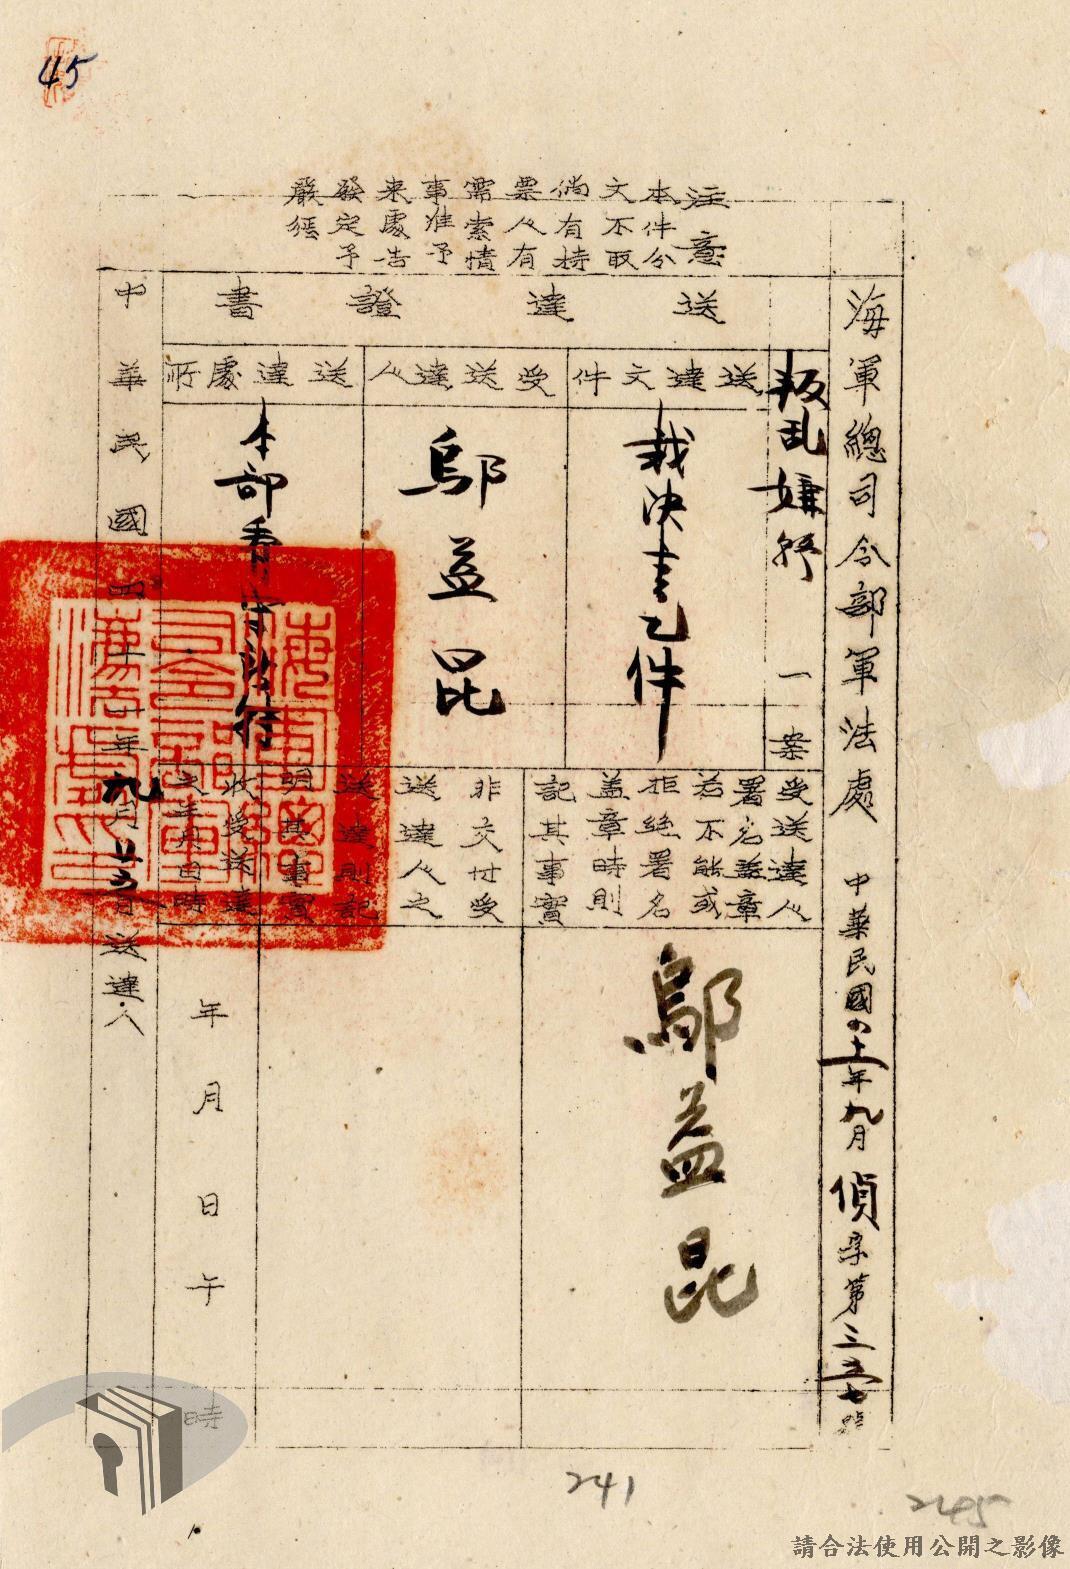 45
注意
本件分
文不取
倘有持
票人有
需索情
事准予
來處告
發定予
嚴懲
海軍總司令部軍法處 中華民國四十一年九月偵字第三五七號
叛乱嫌疑 一案
送達證書
送達文件
裁決書乙件
受送達人
鄔益昆
送達處所
本部看守所
受送達人
署名蓋章
若不能或
拒絕署名
蓋章時則
記其事實
鄔益昆
非交付受
送達人之
送達則記
明其事實
收受送達
之年月日時
年月日午時
中華民國四十一年九月廿五日送達人
241
245
請合法使用公開之影像